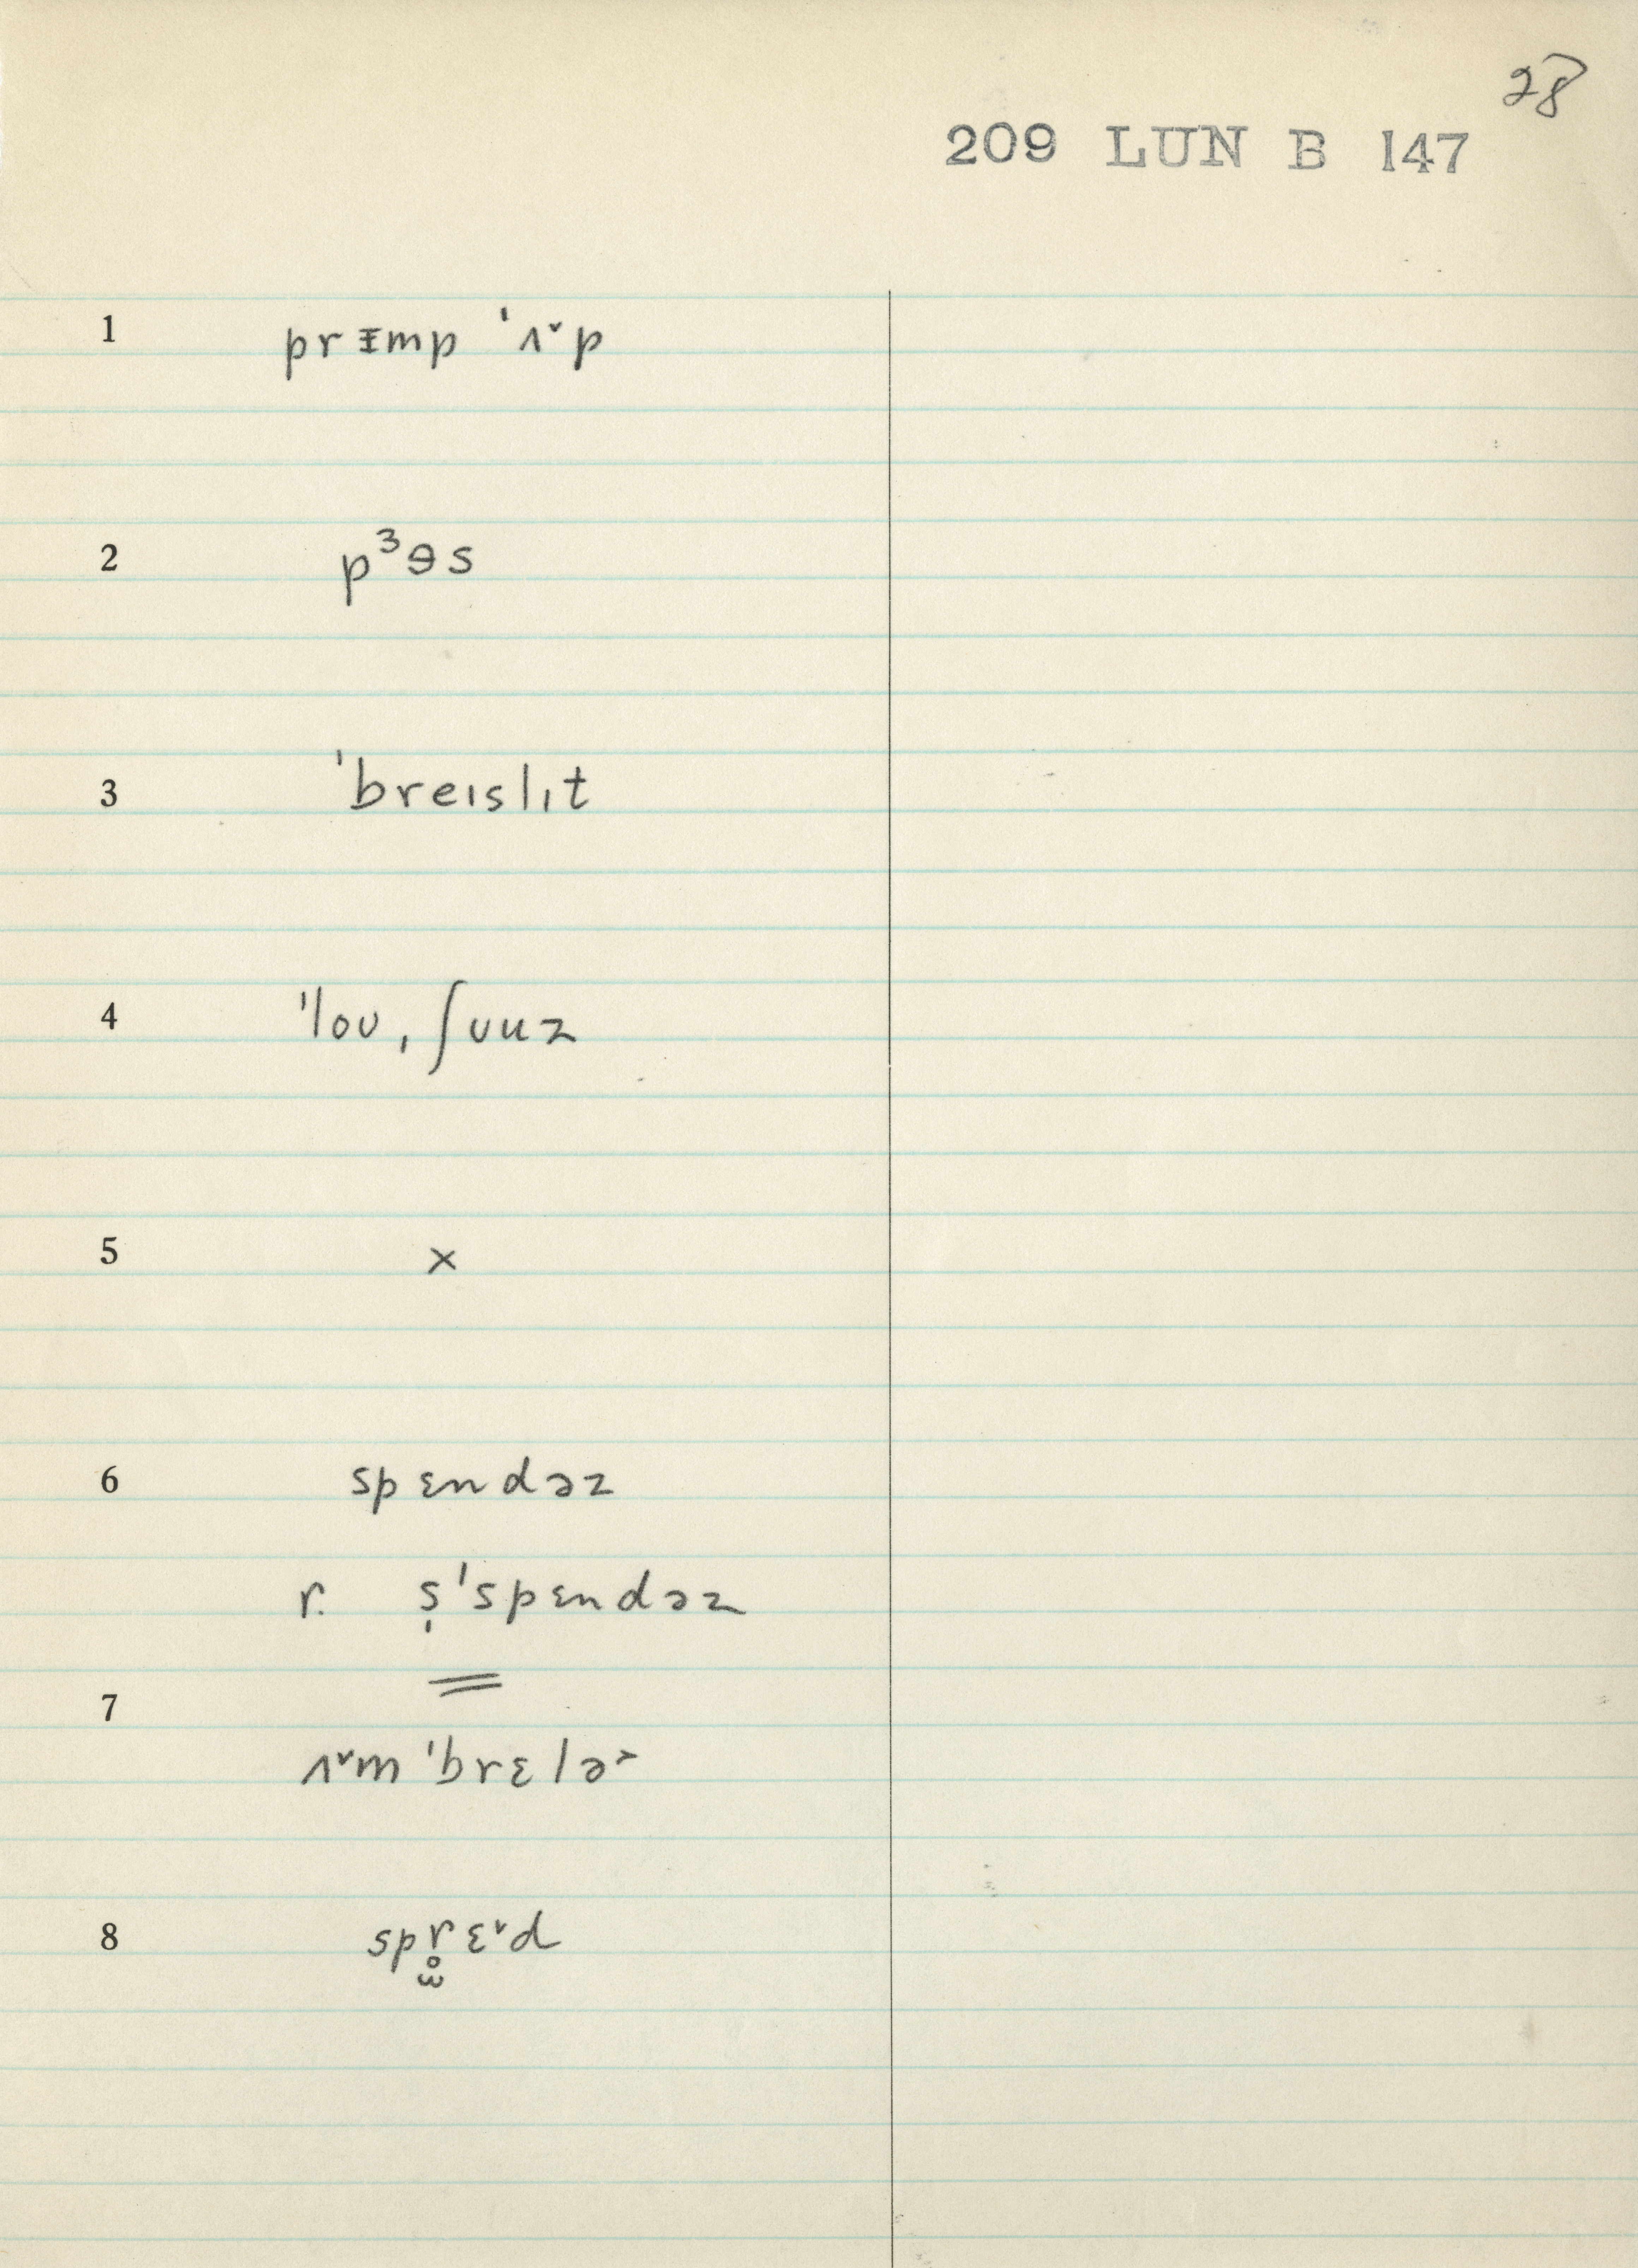 28
209 LUN B 147
1 prɪmp ˈʌ˅p
2 pᶾɘs
3 ˈbreɪslɪt
4 ˈloʊˌʃʊuz
5 x
6 spɛndəz
r. s̩ˈspɛndəz
7
ʌ˅mˈbrɛlə˃
8 spr̥ɛ˅d